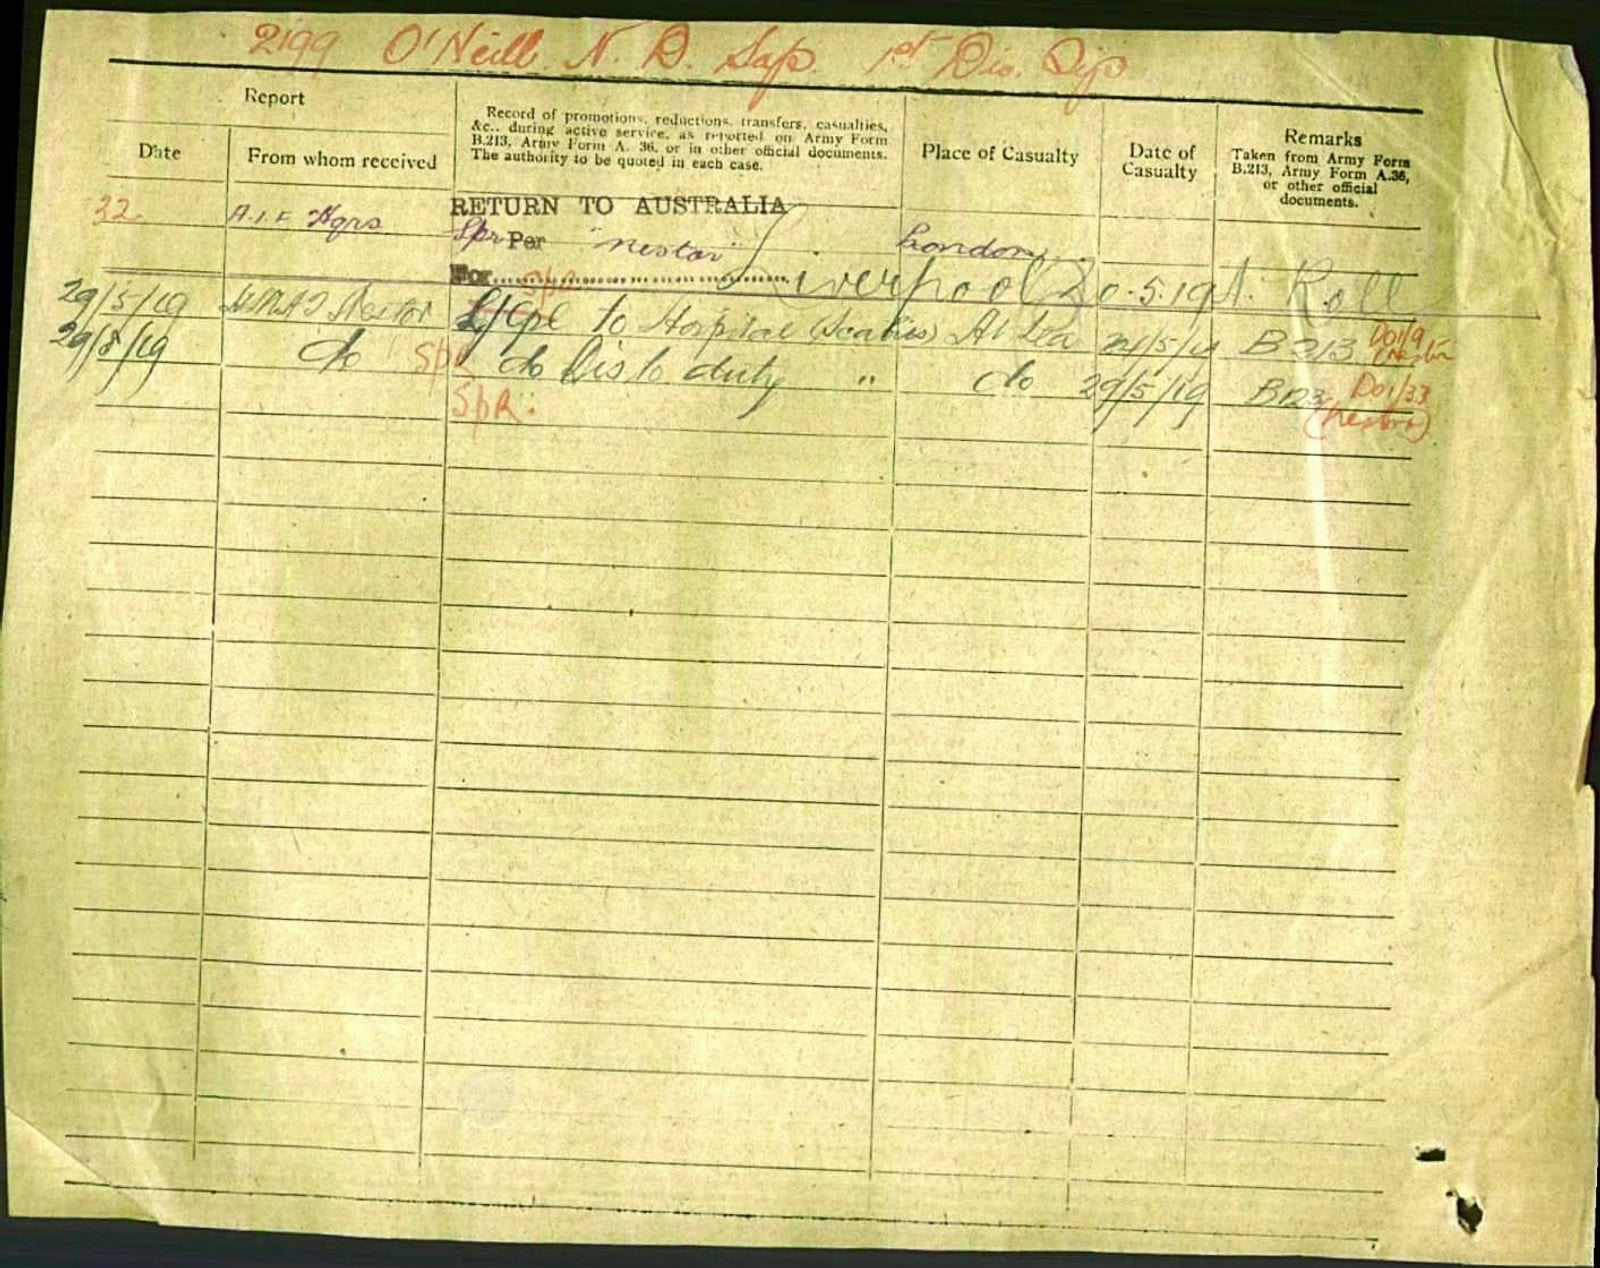 2199 O'Neill. N. D. Sap. 1st Div. Sig
Report
Date
From whom received
Record of promotions, reductions, transfers, casualties,
&c., during active service, as reported on Army Form
B.213, Army Form A. 36, or in other official documents.
The authority to be quoted in each case.
Place of Casualty
Date of
Casualty
Remarks
Taken from Army Form
B.213, Army Form A.36,
or other official
documents.
32 A.I.F. Hqrs RETURN TO AUSTRALIA
Spr Per "Nestor" London
For Liverpool 20.5.19 N. Roll
29/5/19 HMAT Nestor L/Cpl to Hospital (Scabies) At Sea B213 DO1/9
(Nestor)
29/8/19 do Spr do Dis to duty " do 29/5/19 DO1/33
SpR. (Nestor)